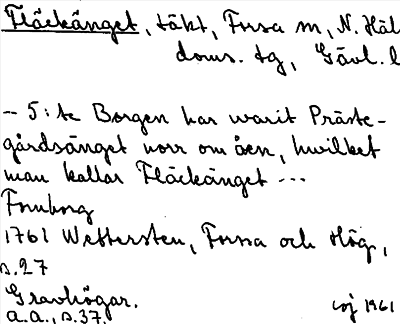 Fläckänget, täkt, Forsa sn, N. Häl
doms. tg, Gävl. l
– 5:te Borgen har warit Präste-
gårdsänget norr om åen, hwilket
man kallar Fläckänget ---
Fornborg
1761 Wettersten, Forssa och Hög,
s.27
Gravhögar.
a.a., s.37.
1961